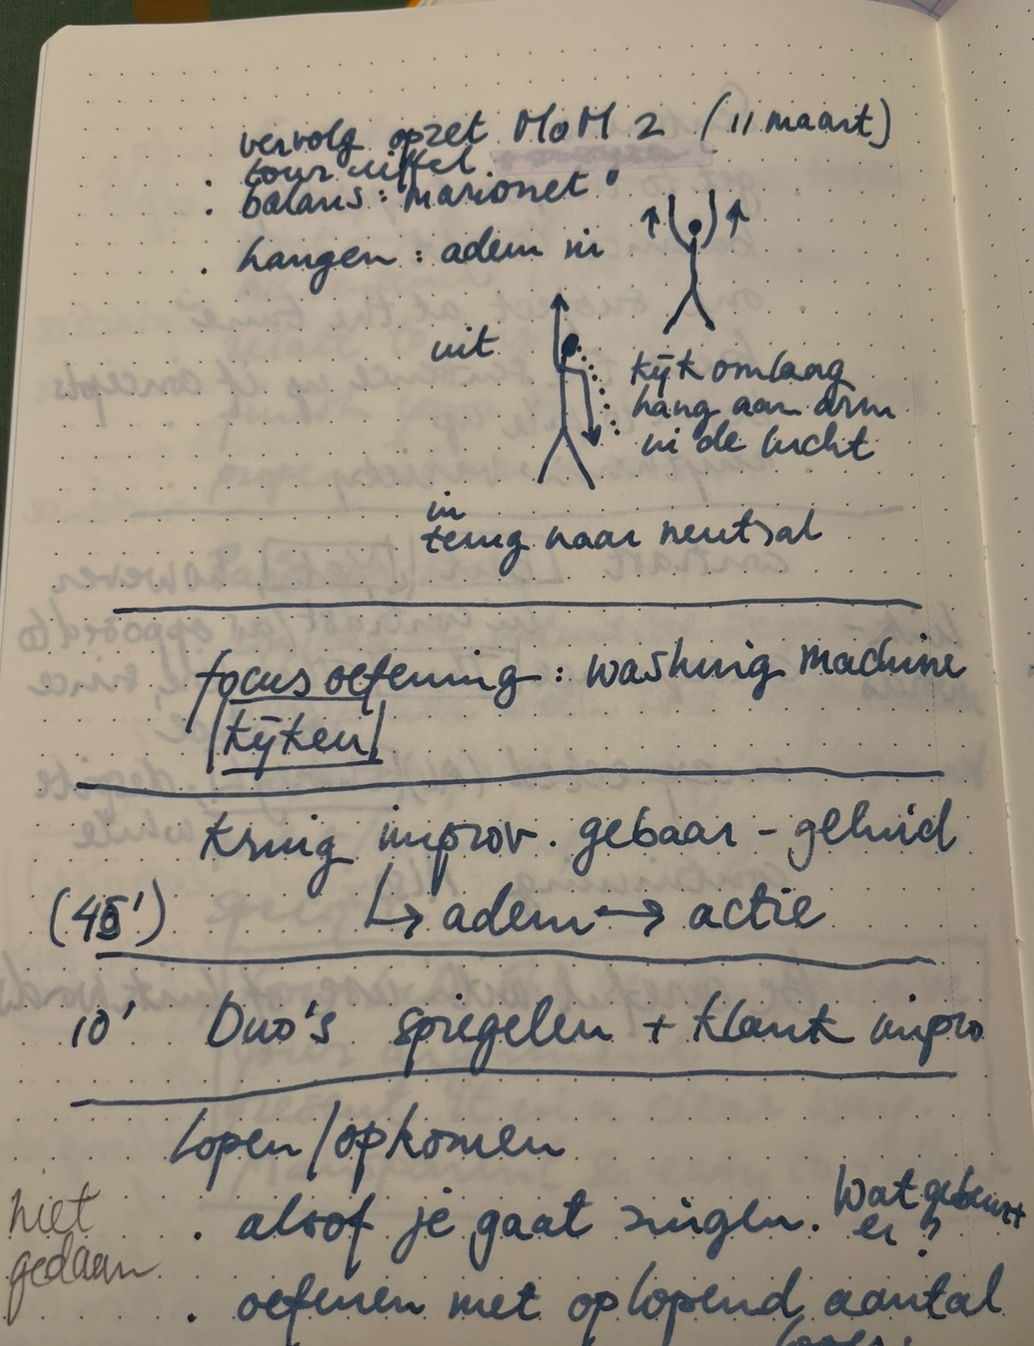 vervolg opzet MoM 2 (11 maart)
. tour eiffel
. balans: marionet
. hangen: adem in
uit
kijk omlaag
hang aan arm
in de lucht
in
terug naar neutraal
focus oefening: washing machine
kijken
Kring improv. gebaar - geluid
(45') ↳ adem → actie
10' Duo's spiegelen + klank impro
Lopen/opkomen
niet
gedaan
. alsof je gaat zingen. Wat gebeurt
er?
. oefenen met oplopend aantal